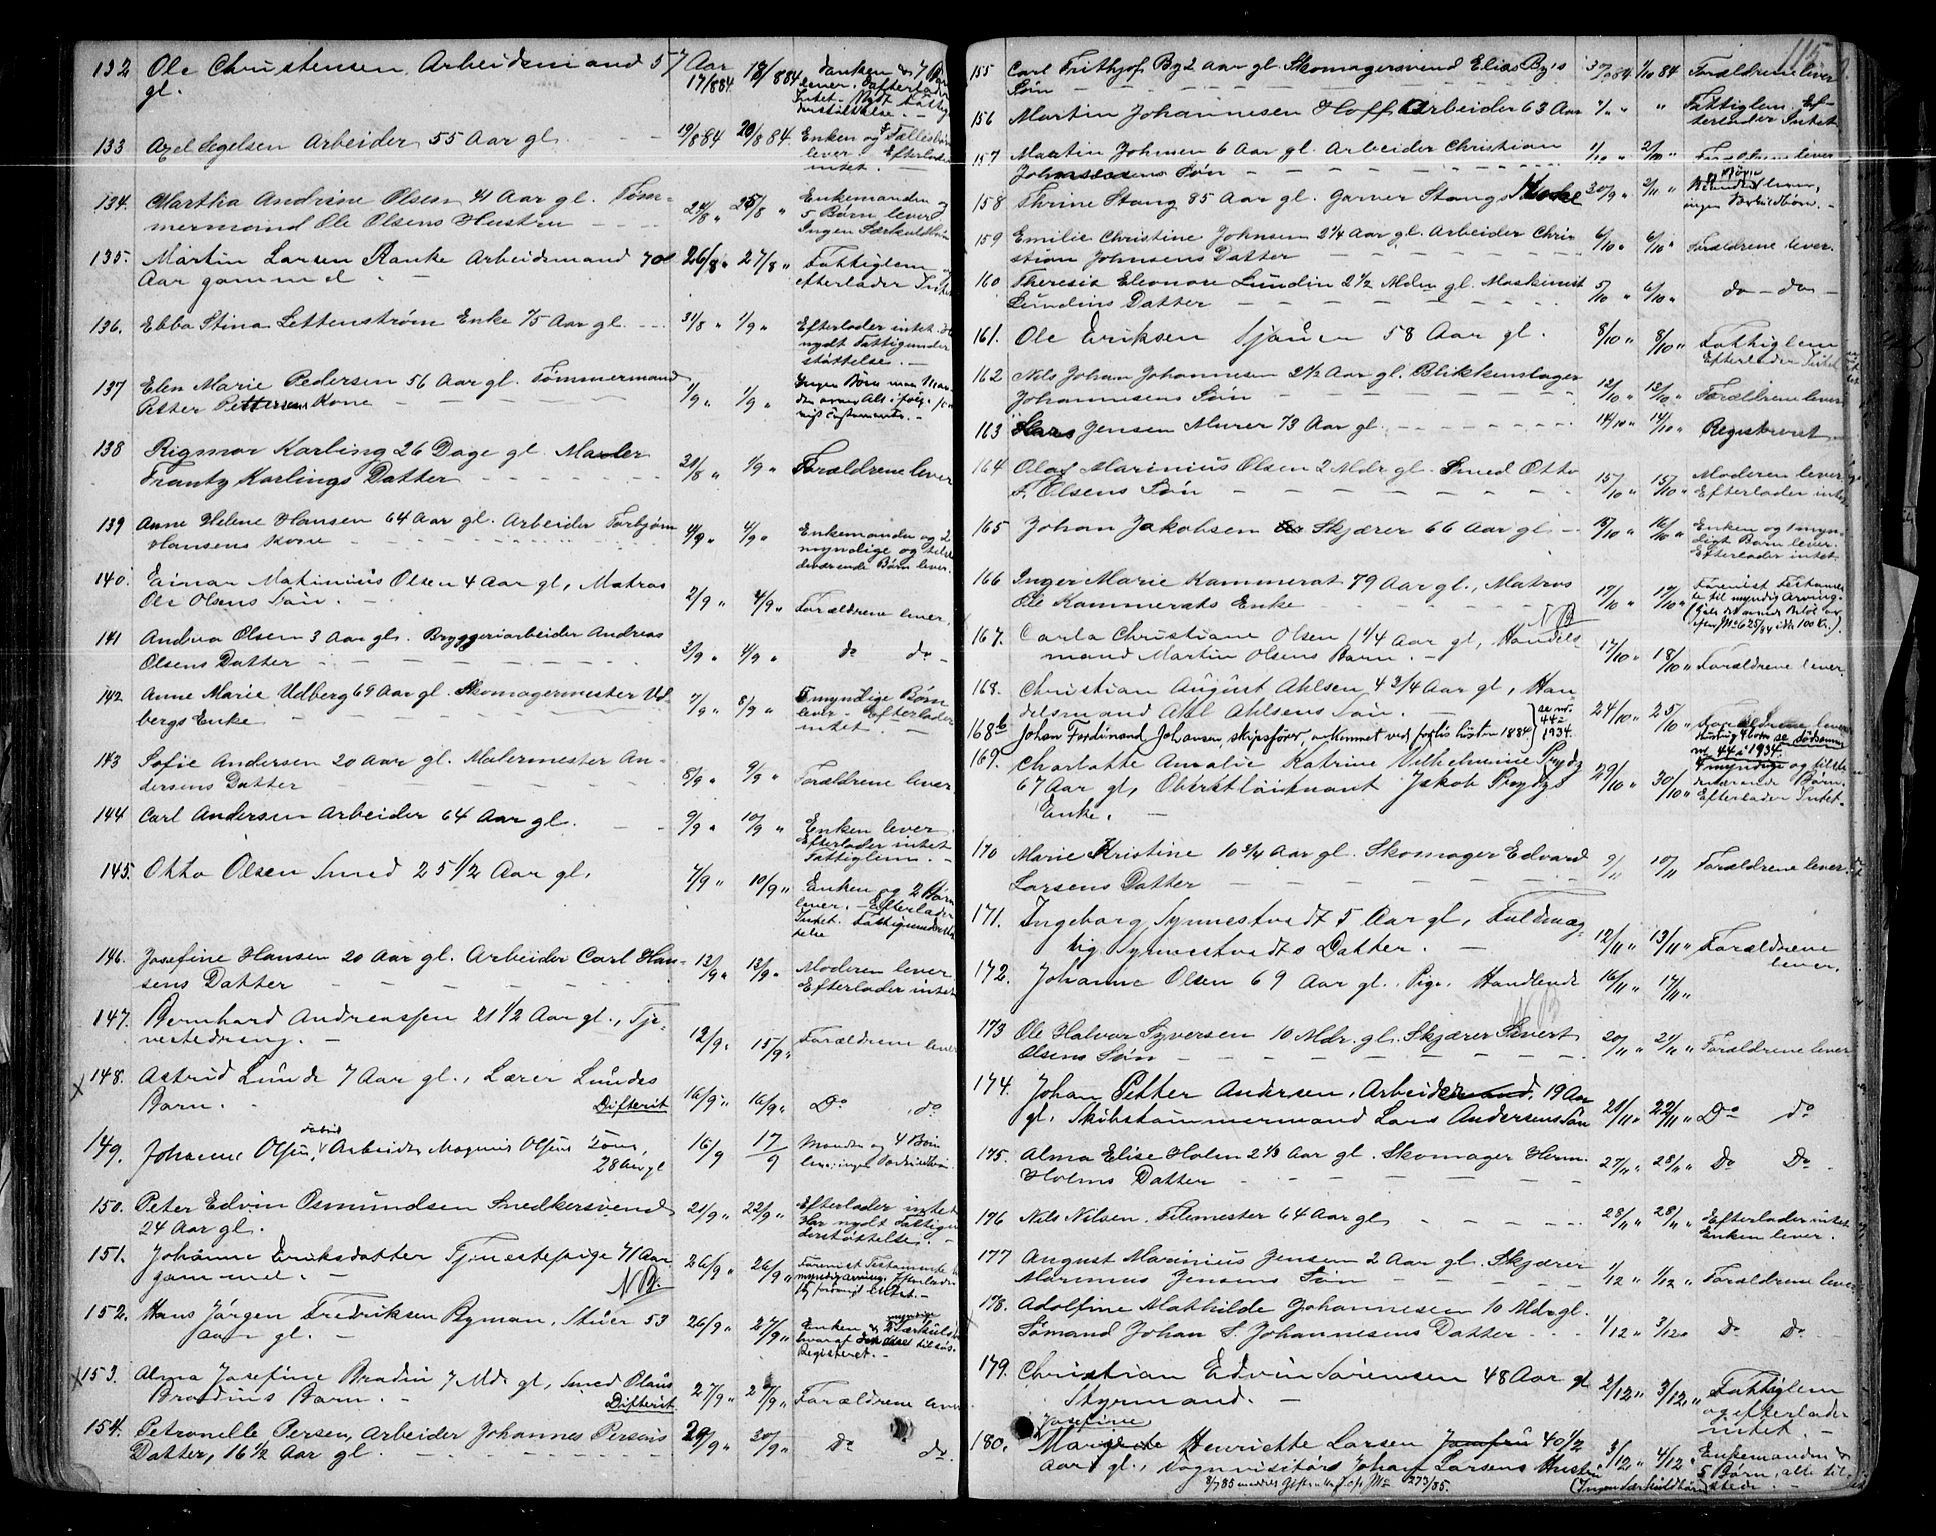 132 Ole Christensen Arbeidsmand 57 Aar 17/8 84 18/8 84 Enken & 7 Børn
gl. lever. Efterlader
Intet. Nydt Fattig
understøttelse. -
133 Axel Segelsen Arbeider 55 Aar gl. 19/8 84 20/8 84. Enken og Fællesbørn
lever Efterlader
intet. -
134. Martha Andrine Olsen 41 Aar gl. Tøm- 24/8 " 25/8 " Enkemanden og
mermand Ole Olsens Hustru 5 Børn lever
Ingen Særkuldbørn
135. Martin Larsen Ranke Arbeidsmand 70 26/8 " 27/8 " Fattiglem
Aar gammel - efterlader Intet
136. Ebba Stina Lettenstrøm Enke 75 Aar gl. 31/8 " 1/9 " Efterlader intet. H
nydt Fattigunder
støttelse. -
137 Elen Marie Pedersen 56 Aar gl. Tømmermand 1/9 " 1/9 " Ingen Børn
Petter Pettersens Kone
138 Rigmor Karling 26 Dage gl Maler 31/8 " 1/9 " Forældrene lever
Frantz Karlings Datter
139 Anne Helene Hansen 64 Aar gl. Arbeider Torbjørn 4/9 " 4/9 " Enkemanden og 2
Hansens Kone myndige og tilste
deværende Børn lever.
140. Einar Maximius Olsen 4 Aar gl, Matros 2/9 " 4/9 " Forældrene lever.
Ole Olsens Søn. -
141 Andrea Olsen 3 Aar gl. Bryggeriarbeider Andreas 3/9 " 4/9 " do do -
Olsens Datter
142 Anne Marie Udberg 69 Aar gl. Skomagermester Ud- 7/9 " 8/9 " myndige Børn
bergs Enke lever - Efterlader
intet. -
143 Sofie Andersen 20 Aar gl. Malermester An- 8/9 " 9/9 " Forældrene lever
dersens Datter
144 Carl Andersen Arbeider 64 Aar gl. 9/9 " 10/9 " Enken lever
Efterlader intet
Fattiglem. -
145. Otto Olsen Smed 25 1/2 Aar gl. 7/9 " 10/9 " Enken og 2 Børn
lever. - Efterlader
Intet. Fattigunderstøt
telse
146. Josefine Hansen 20 Aar gl. Arbeider Carl Han- 12/9 " 13/9 " Moderen lever
sens Datter Efterlader intet
147. Bernhard Andreassen 21 1/2 Aar gl., Tje- 12/9 " 15/9 " Forældrene lever
nestedreng. -
x 148. Astrid Lunde 7 Aar gl., Lærer Lundes 16/9 " 16/9 " Do do
Barn. - Difterit
149. Johanne Olsen, Arbeider Magnus Olsens 16/9 17/9 Manden og 4 Børn
28 Aar gl
150. Peter Edvin Osmundsen Snedkersvend 21/9 " 22/9 " Efterlader intet
24 Aar gl. Har nydt Fattigun
derstøttelse. -
151. Johanne Eriksdatter Tjenestepige 71 Aar 26/9 " 26/9 " Forevist Testamente
gammel. - NB.
152. Hans Jørgen Fredriksen Byman, Stuer 53 26/9 " 27/9 " Enken
Aar gl. - Registreret. -
x 153. Alma Josefine Brodin 7 Mdr gl, Smed Olaus 27/9 " 27/9 " Forældrene lever
Brodins Barn. - Difterit
154. Petronelle Persen, Arbeider Johannes Persens 29/9 " 30/9 " Do do
Datter, 16 1/2 Aar gl
115
155 Carl Frithjof By 2 Aar gl. Skomagersvend Elias Bys 1/10 84 Forældrene lever
Søn
156 Martin Johannesen Hoff Arbeider 63 Aar Fattiglem. Ef-
terlader Intet
157 Martin Johnsen 6 Aar gl. Arbeider Christian 1/10 " 2/10 " Forældrene lever
Johnsens Søn
158 Thrine Stang 85 Aar gl. Garver Stangs Enke 30/9 " 2/10 "
159 Emilie Christine Johnsen 2 1/4 Aar gl. Arbeider Chri- 6/10 " 6/10 " Forældrene lever.
stian Johnsens Datter
160 Theresia Eleonore Lundin 2 1/2 Mdr gl. Maskinist 5/10 " 6/10 " do - do -
Lundins Datter
161. Ole Eriksen Sjauer 58 Aar gl. 8/10 " 8/10 " Fattiglem
Efterlader Intet
162 Nils Johan Johannesen 2 1/2 Aar gl. Blikkenslager 12/10 " 13/10 " Forældrene lever
Johannesens Søn
163 Hans Jensen Murer 73 Aar gl. 14/10 " 14/10 " Registreret
164 Olaf Marinius Olsen 2 Mdr gl. Smed Otto 15/10 " 15/10 " Moderen lever
F. Olsens Søn Efterlader intet
165 Johan Jakobsen Skjærer 66 Aar gl 15/10 " 16/10 " Enken og 1 myn-
digt Barn lever.
Efterlader intet
166 Inger Marie Kammerat 79 Aar gl., Matros 17/10 " 17/10 " Forevist Testamen
Ole Kammerats Enke te til myndig Arving.
NB
167. Carla Christiane Olsen 1 1/4 Aar gl, Handels- 17/10 " 18/10 " Forældrene lever.
mand Martin Olsens Barn. -
168. Christian August Ahlsen 4 3/4 Aar gl, Han- 24/10 " 25/10 " Forældrene lever
delsmand Ahlsens Søn. -
168b Johan Ferdinand Johansen, skipsfører, ankommet ved forlis høsten 1884 } se nr. 44 - 1934. se dødsanm. nr 44 i 1934.
169. Charlotte Amalie Katrine Wilhelmine Prydz 29/10 " 30/10 " 4 myndige og tilste
67 Aar gl, Oberstløitnant Jakob Prydz's deværende Børn.
Enke. - Efterlader Intet -
170 Marie Kristine 10 3/4 Aar gl. Skomager Edvard 9/11 10/11 Forældrene lever.
Larsens Datter
171. Ingeborg Synnestvedt 5 Aar gl, Fuldmæg- 12/11 " 13/11 " Forældrene
tig Synnestvedts Datter. - lever.
172. Johanne Olsen 69 Aar gl. Pige. Handlende 16/11 " 17/11 "
173 Ole Halvor Syversen 10 Mdr. gl. Skjærer Sivert 20/11 " 21/11 " Forældrene lever
Olsens Søn
174. Johan Petter Andersen, Arbeidsmand, 19 Aar 21/11 " 22/11 " Do do
gl. Skibstømmermand Lars Andersens Søn
175. Alma Elise Holm 2 1/3 Aar gl. Skomager Herm. 27/11 " 28/11 " Do Do
Holms Datter
176 Nils Nilsen. Filemester 64 Aar gl 28/11 " 28/11 " Efterlader intet
Enken lever.
177 August Marinius Jensen 2 Aar gl. Skjærer 1/12 " 1/12 " Forældrene lever
Marinius Jensens Søn
178. Adolfine Mathilde Johannesen 10 Mdr gl. 1/12 " 3/12 " Do Do
Sømand Johan S. Johannesens Datter
179. Christian Edvin Sørensen 48 Aar gl 2/12 " 3/12 " Fattiglem
Styrmand. - og efterlader
intet. -
Josefine
180. Henriette Larsen Jomfru 40 1/2 3/12 " 4/12 " Enkemanden &
Aar gl., Vognvisitør Johan Larsens Hustru 5 Børn, alle til-
(Ingen Særkuldbørn) stede. -
273/85.